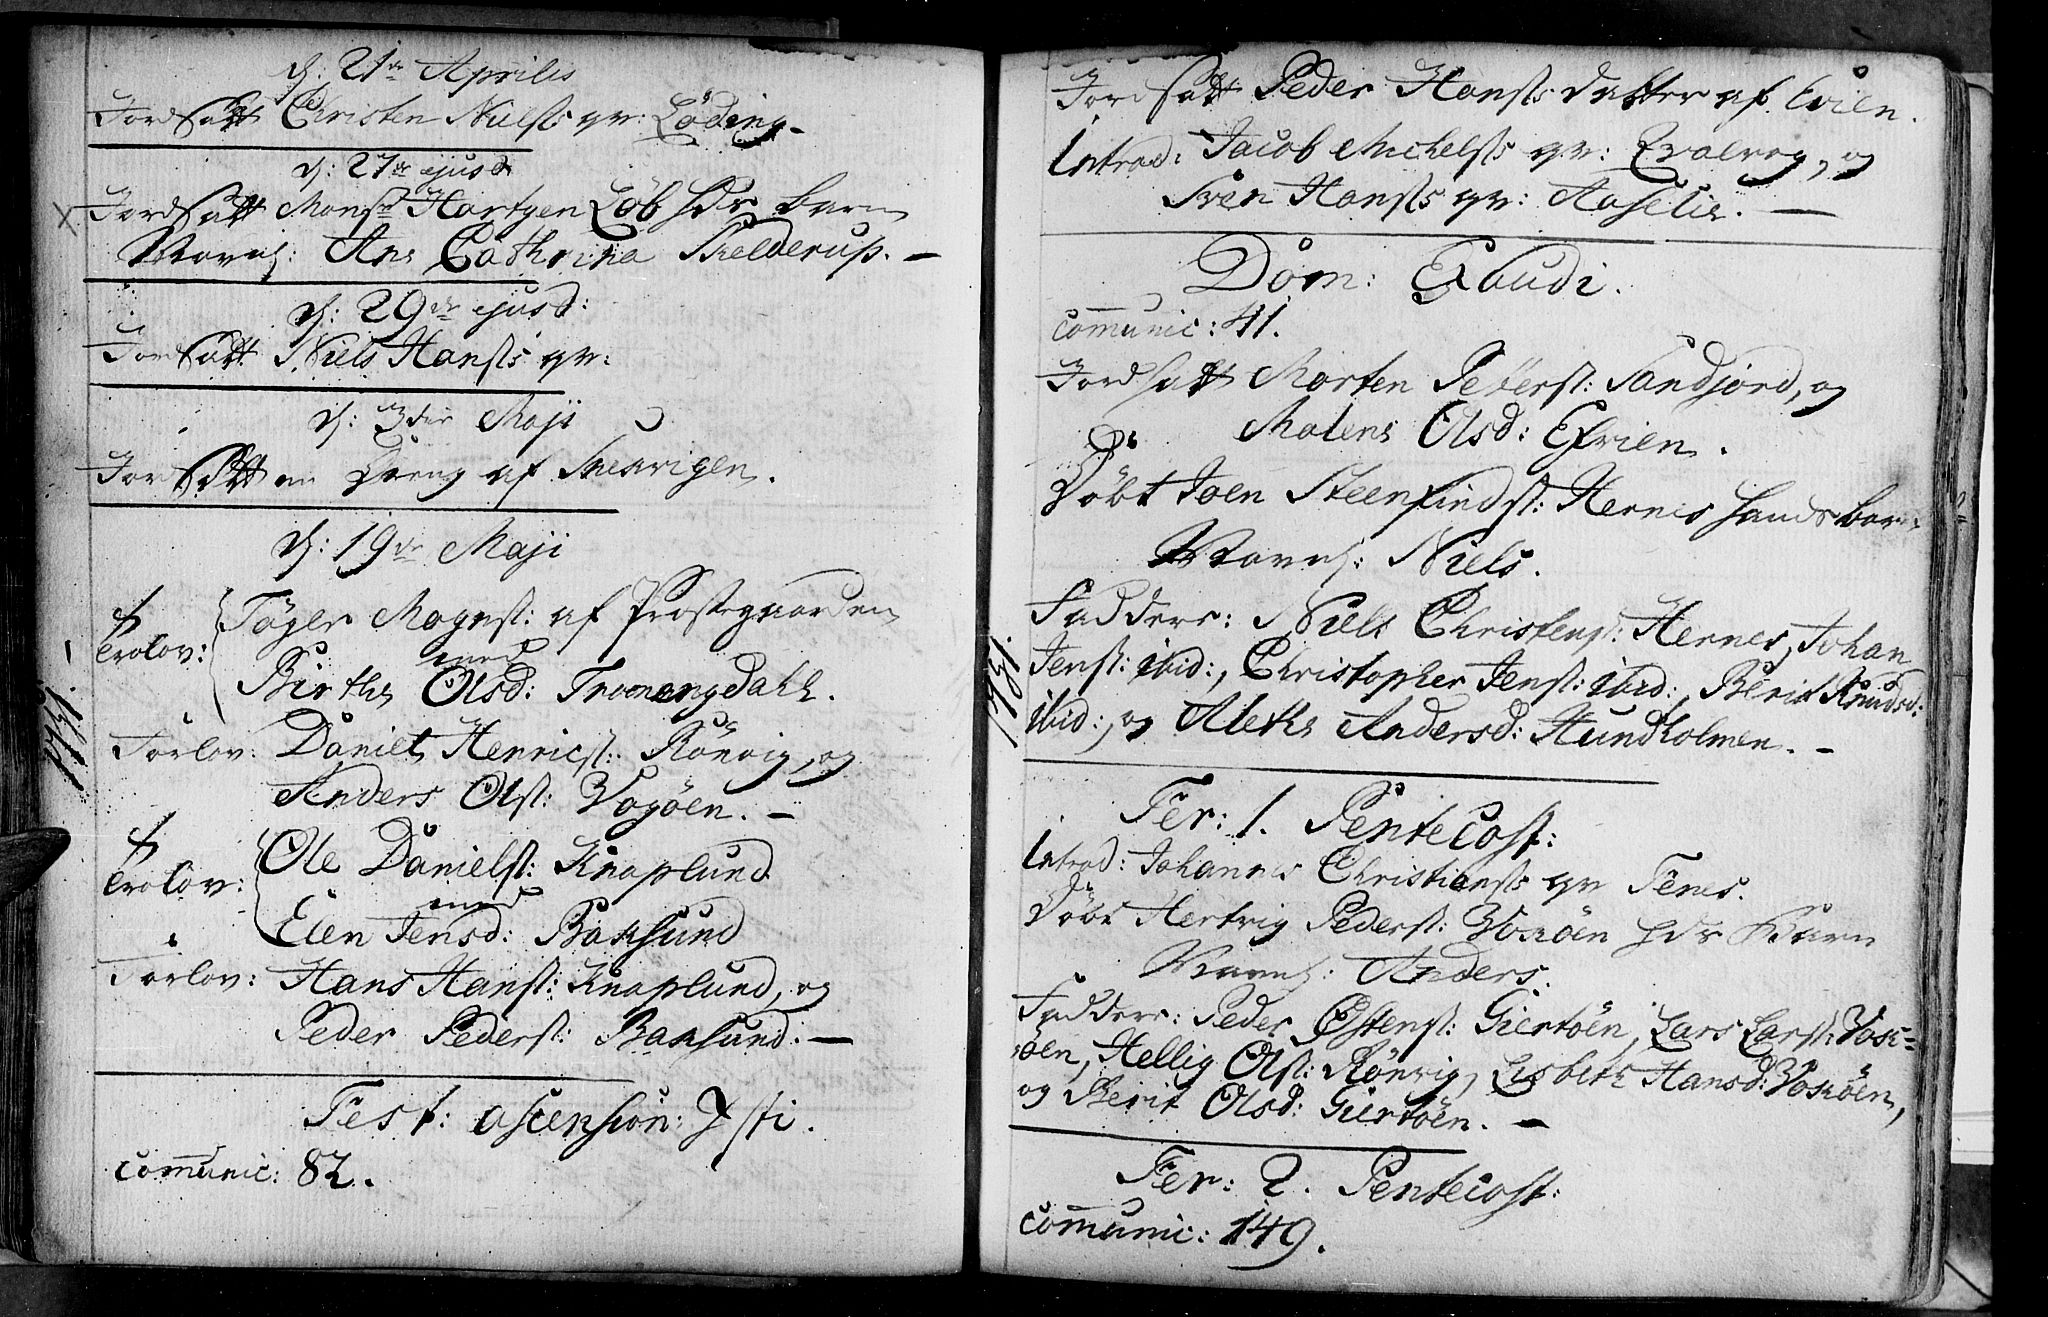 d: 21de Aprilis
Jordsatt Christen Nielss qv: Löding.
d: 27de ejusd
Jordsatt Monsr Hartgen Löb hds barn
Navnl: Ane Cathrina Skelderup. —
d: 29de ejusd:
Jordsatt Niels Hanss qv:
d: 3der Maji
Jordsatt en Dreng af Skervigen.
d: 19de Maji
Trolov: Töger Mognss: af Prostegaarden
med
Birthe Olsd: Tromengdahl.
Forlov: Daniel Henrics: Rönvig, og
Anders Ols: Vogöen. —
Trolov: Ole Daniels: Knaplund
med
Elen Jensd: Baksund
Forlov: Hans Hans: Knaplund, og
Peder Peders: Baksund: —
Fest: ascension: Xsti.
comunic: 82.
1731.
Jordsatt Peder Hanss datter af Evien.
Introd: Jacob Michelss qv: Evalvog, og
Sven Hanss qv: Aaselie. —
Dom: Exaudi.
comunic: 41.
Jordsatt Morten Peters: Sandjord, og
Malene Olsd: Efvien.
Döbt Joen Steenfinds: Hernes hands barn
Navnl: Niels.
Faddere: Niels Christens: Hernes, Johan
Jens: ibid:, Christopher Jens: ibid:, Berit Knudsd:
ibid:, og Aleke Andersd: Hundholmen. —
1731.
Fer: 1. Pentecost:
Introd: Johannes Christianss qv Fenes.
Döbt Hertvig Peders: Voxöen hds Barn
Navnl: Anders.
Faddere: Peder Östens: Giertöen, Lars Lars: Vox=
öen, Hellig Ols: Rönvig, Lisbeth Hansd: Voxöen,
og Berit Olsd: Giertöen. —
Fer: 2. Pentecost:
comunic: 149.